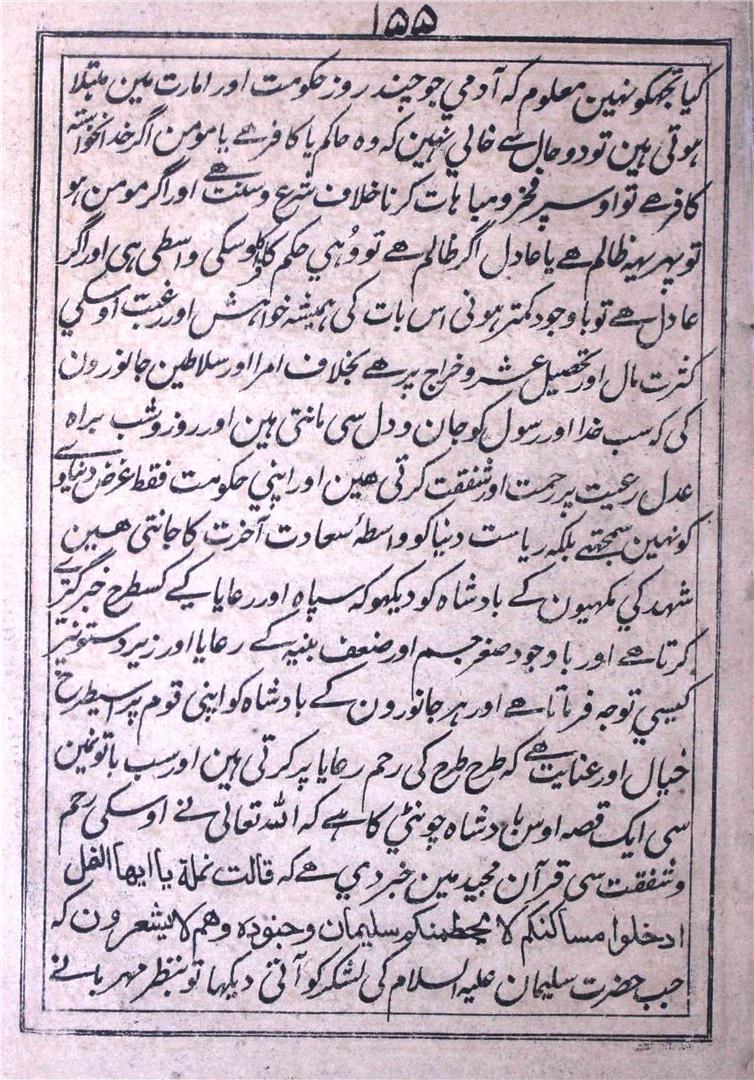 ۱۵۵
کیا تجھکو نہین معلوم کہ آدمي جو چند روز حکومت اور امارت مین مبتلا
ہوتي ہین تو دو حال سے خالي نہین کہ وہ حاکم یا کافر ہے یا مومن اگر خدانخواستہ
کافر ہے تو اوسپر فخر و مباہات کرنا خلاف شرع و سنت ہے اور اگر مومن ہو
تو پہر یہہ ظالم ہے یا عادل اگر ظالم ہے تو وُہي حکم کافر کا اوسکی واسطی ہی اور اگر
عادل ہے تو باوجود کمتر ہونی اس بات کی ہمیشہ خواہش اور رغبت اوسکي
کثرت مال اور تحصیل عشر و خراج پر ہے بخلاف امرا اور سلاطین جانورون
کی کہ سب خدا اور رسول کو جان و دل سی مانتی ہین اور روز و شب براہ
عدل رعیت پر رحمت اور شفقت کرتی ہین اور اپني حکومت فقط غرض دنیاوي
کو نہین سمجھتے بلکہ ریاست دنیا کو واسطۂ سعادت آخرت کا جانتی ھین
شہد کي مکہیون کے بادشاہ کو دیکہو کہ سپاہ اور رعایا کے کسطرح خبرگیري
کرتا ہے اور باوجود صغر جسم اور ضعف بنیہ کے رعایا اور زیر دستونپر
کیسي توجہ فرماتا ہے اور ہر جانورون کے بادشاہ کو اپنی قوم پر اسیطرح
خیال اور عنایت ہے کہ طرح طرح کی رحم رعایا پر کرتی ہین اور سب باتونمین
سی ایک قصہ اوس بادشاہ چونٹي کا ہے کہ اللہ تعالی نے اوسکی رحم
و شفقت سی قرآن مجید مین خبر دي ہے کہ قالت نملة یا ایها النمل
ادخلوا مساکنکم لا یحطمنکم سلیمان و جنوده وهم لا یشعرون کہ
جب حضرت سلیمان علیہ السلام کی لشکر کو آتی دیکہا تو بنظر مہربانے